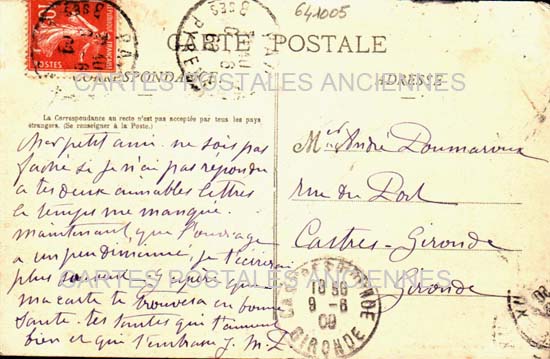 641005
CARTE POSTALE
CORRESPONDANCE
ADRESSE
La Correspondance au recto n'est pas acceptée par tous les pays
étrangers. (Se renseigner à la Poste.)
Cher petit ami. ne sois pas
faché si je n'ai pas répondu
a tes deux aimables lettres
le temps me manque.
maintenant que l'ouvrage
a un peu diminué, je t'écrirai
plus souvent. J'espère que
ma carte te trouvera en bonne
santé. tes tantes qui t'aiment
bien et qui t'embrasse J. M. L
André Doumaroux
rue du Port
Castres-Gironde
Gironde
CARTES POSTALES ANCIENNES
CARTES POSTALES ANCIENNES
10
POSTES
CASTRES GIRONDE
18 50
9 - 6
09
GIRONDE